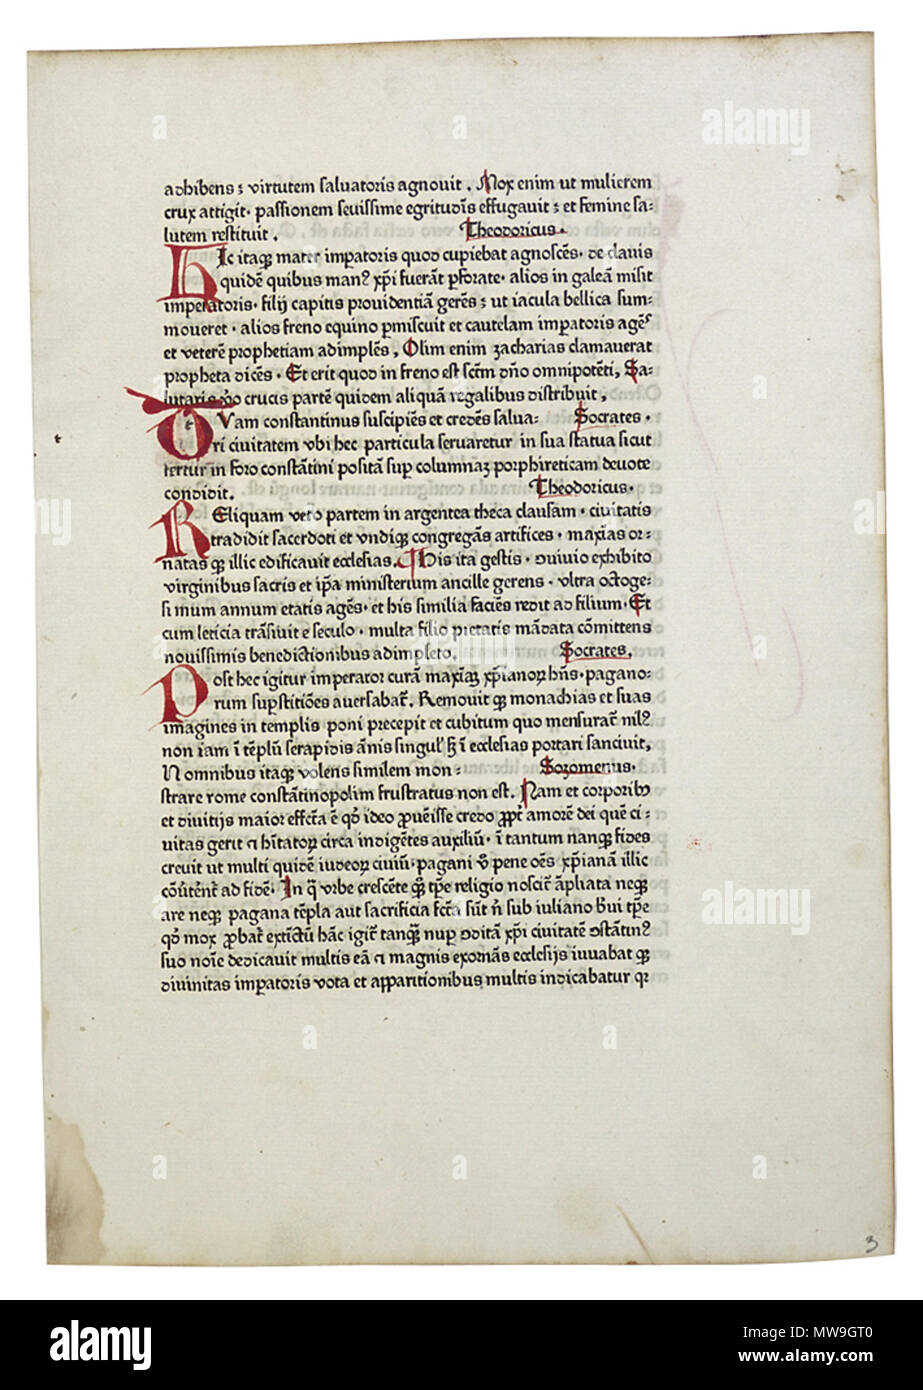 adhibens ; virtutem saluatoris agnouit . Mox enim ut mulierem
crux attigit · passionem seuissime egritudīs effugauit ; et femine sa=
lutem restituit . Theodoricus ·
HIc itaqꝫ mater imꝑatoris quod cupiebat agnoscēs · de clauis
quidē quibus manꝰ xp̄i fuerāt ꝑforate · alios in galeā misit
imperatoris · filij capitis prouidentiā gerēs ; ut iacula bellica sum=
moueret · alios freno equino ꝑmiscuit et cautelam imꝑatoris agēs
et veterē prophetiam adimplēs , Olim enim zacharias clamauerat
propheta dicēs · Et erit quod in freno est sct̄m dn̄o omnipotēti , Sa=
lutaris crucis partē quidem aliquā regalibus distribuit ,
QVam constantinus suscipiēs et credēs salua= Socrates ·
ri ciuitatem vbi hec particula seruaretur in sua statua sicut
fertur in foro constātini positā suꝑ columnaꝫ porphireticam deuote
condidit . Theodoricus ·
REliquam vero partem in argentea theca clausam · ciuitatis
tradidit sacerdoti et vndiqꝫ congregās artifices · maxīas or=
natas qꝫ illic edificauit ecclesias . His ita gestis · ɔuiuio exhibito
virginibus sacris et ip̄a ministerium ancille gerens · vltra octoge=
simum annum etatis agēs · et his similia faciēs redit ad filium · Et
cum leticia trāsiuit e seculo · multa filio pietatis mādata cōmittens
nouissimis benedictionibus adimpleto . Socrates ,
Post hec igitur imperator curā maxīaꝫ xp̄ianoꝝ hn̄s · pagano=
rum suꝑstitiōes auersabat᷑ . Remouit qꝫ monachias et suas
imagines in templis poni precepit et cubitum quo mensurat᷑ nilꝰ
non iam ī tēplū serapidis ānis singul᷑ ī ecclesias portari sanciuit ,
IN omnibus itaqꝫ volens similem mon= Sozomenus ·
strare rome constātinopolim frustratus non est . Nam et corporibꝰ
et diuitijs maior effc̄ta ē qd̄ ideo ꝓuēisse credo ꝓpt᷑ amorē dei quē ci=
uitas gerit hītatoꝝ circa indigētes auxiliū · ī tantum nanqꝫ fides
creuit ut multi quidē iudeoꝝ ciuiū · pagani pene oēs xp̄ianā illic
cōu̇tent᷑ ad fidē · In q̄ vrbe crescēte tꝑe religio noscit᷑ āpliata neqꝫ
are neqꝫ pagana tēpla aut sacrificia fc̄ta sūt n̄ sub iuliano tꝑe
qd̄ mox ꝓbat᷑ extīctū hāc igit᷑ tanqꝫ nuꝑ ɔditā xp̄i ciuitatē ɔstātinꝰ
suo noīe dedicauit multis eā magnis exornās ecclesijs iuuabat qꝫ
diuinitas imꝑatoris vota et apparitionibus multis indicabatur qꝛ
3
alamy
alamy
Image ID: MW9GT0
www.alamy.com